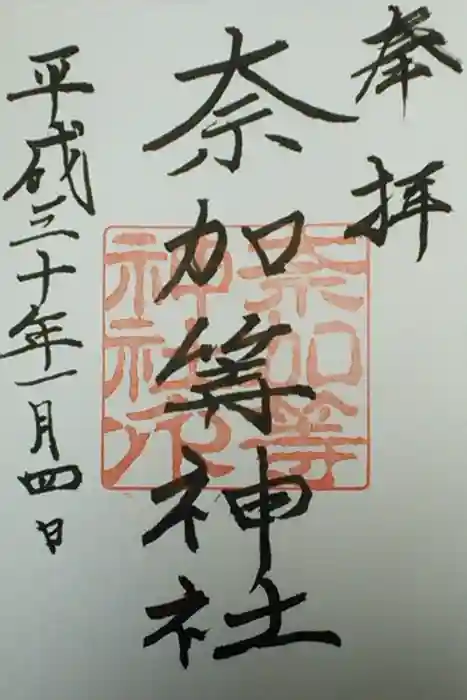 奉拝
奈加等神社
平成三十年一月四日
奈加等
神社印